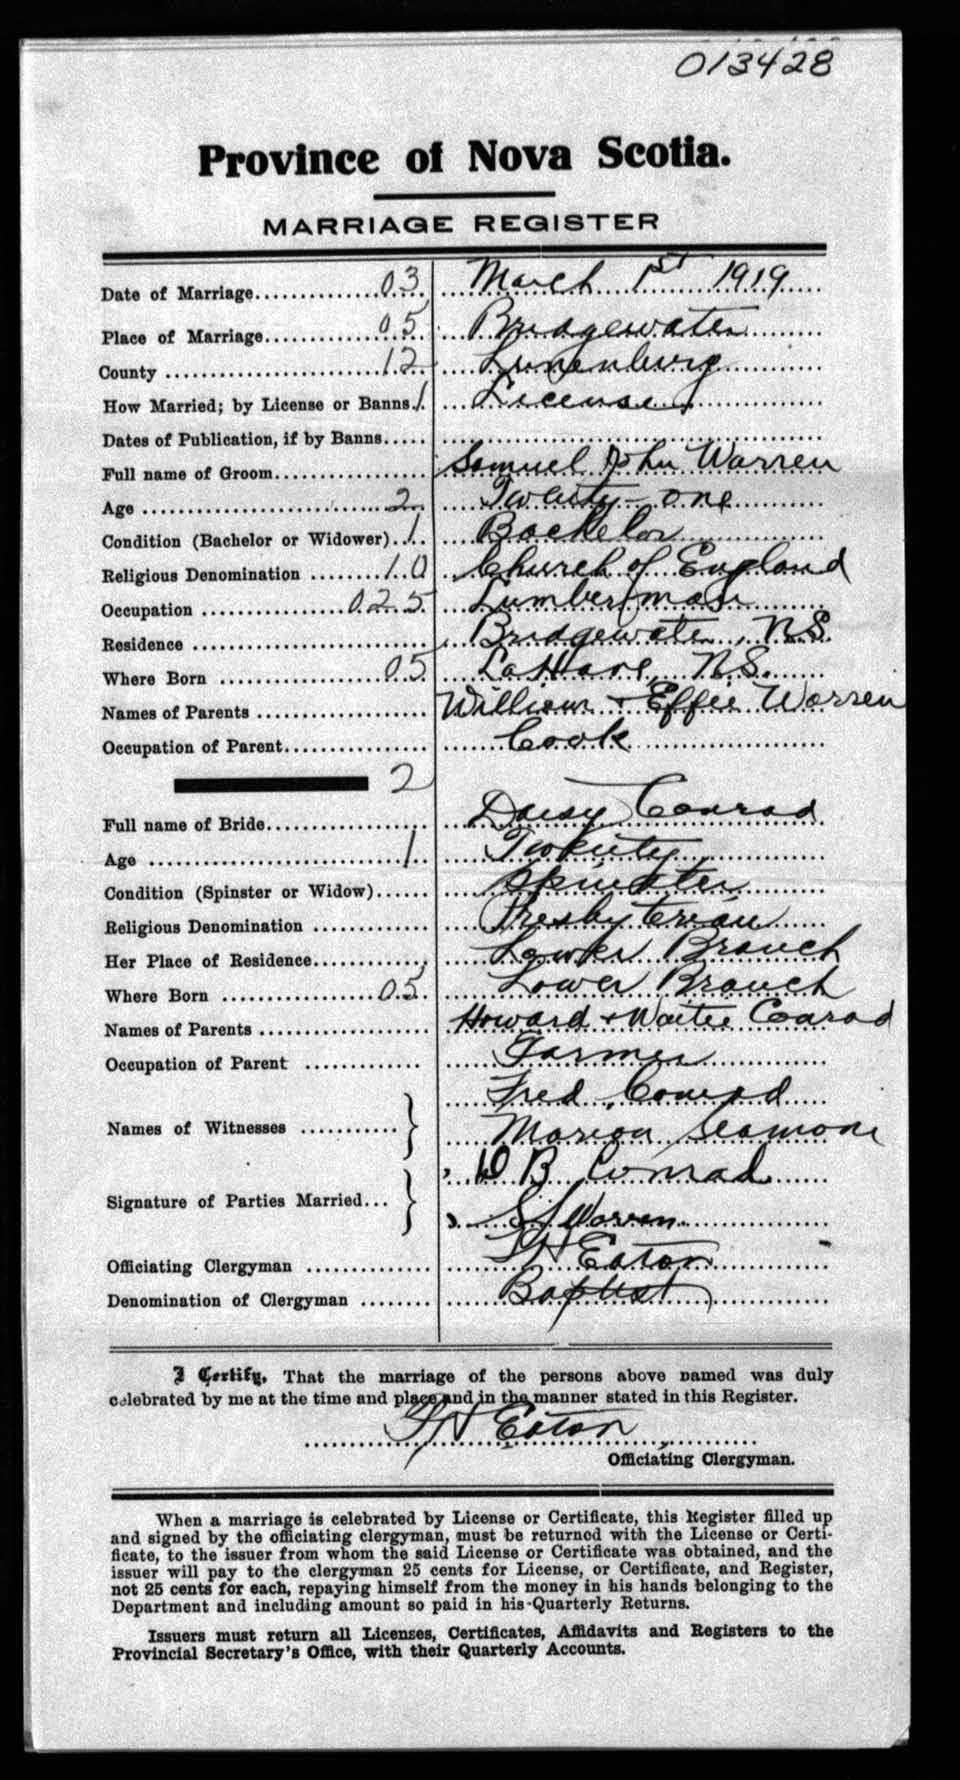 013428
Province of Nova Scotia.
MARRIAGE REGISTER
Date of Marriage 03 March 1st 1919
Place of Marriage 05 Bridgewater
County 12 Lunenburg
How Married; by License or Banns. 1 License
Dates of Publication, if by Banns
Full name of Groom Samuel John Warren
Age 2 Twenty-one
Condition (Bachelor or Widower) 1 Bachelor
Religious Denomination 10 Church of England
Occupation 025 Lumberman
Residence Bridgewater, N.S.
Where Born 05 LaHave, N.S.
Names of Parents William + Effie Warren
Occupation of Parent Cook
2
Full name of Bride Daisy Conrad
Age 1 Twenty
Condition (Spinster or Widow) Spinster
Religious Denomination Presbyterian
Her Place of Residence Lower Branch
Where Born 05 Lower Branch
Names of Parents Howard + Waitie Conrad
Occupation of Parent Farmer
Fred Conrad
Names of Witnesses
Marion Seamone
D B Conrad
Signature of Parties Married
S J Warren
Officiating Clergyman Eaton
Denomination of Clergyman Baptist
I Certify, That the marriage of the persons above named was duly
celebrated by me at the time and place and in the manner stated in this Register.
Eaton
Officiating Clergyman.
When a marriage is celebrated by License or Certificate, this Register filled up
and signed by the officiating clergyman, must be returned with the License or Certi-
ficate, to the issuer from whom the said License or Certificate was obtained, and the
issuer will pay to the clergyman 25 cents for License, or Certificate, and Register,
not 25 cents for each, repaying himself from the money in his hands belonging to the
Department and including amount so paid in his Quarterly Returns.
Issuers must return all Licenses, Certificates, Affidavits and Registers to the
Provincial Secretary's Office, with their Quarterly Accounts.